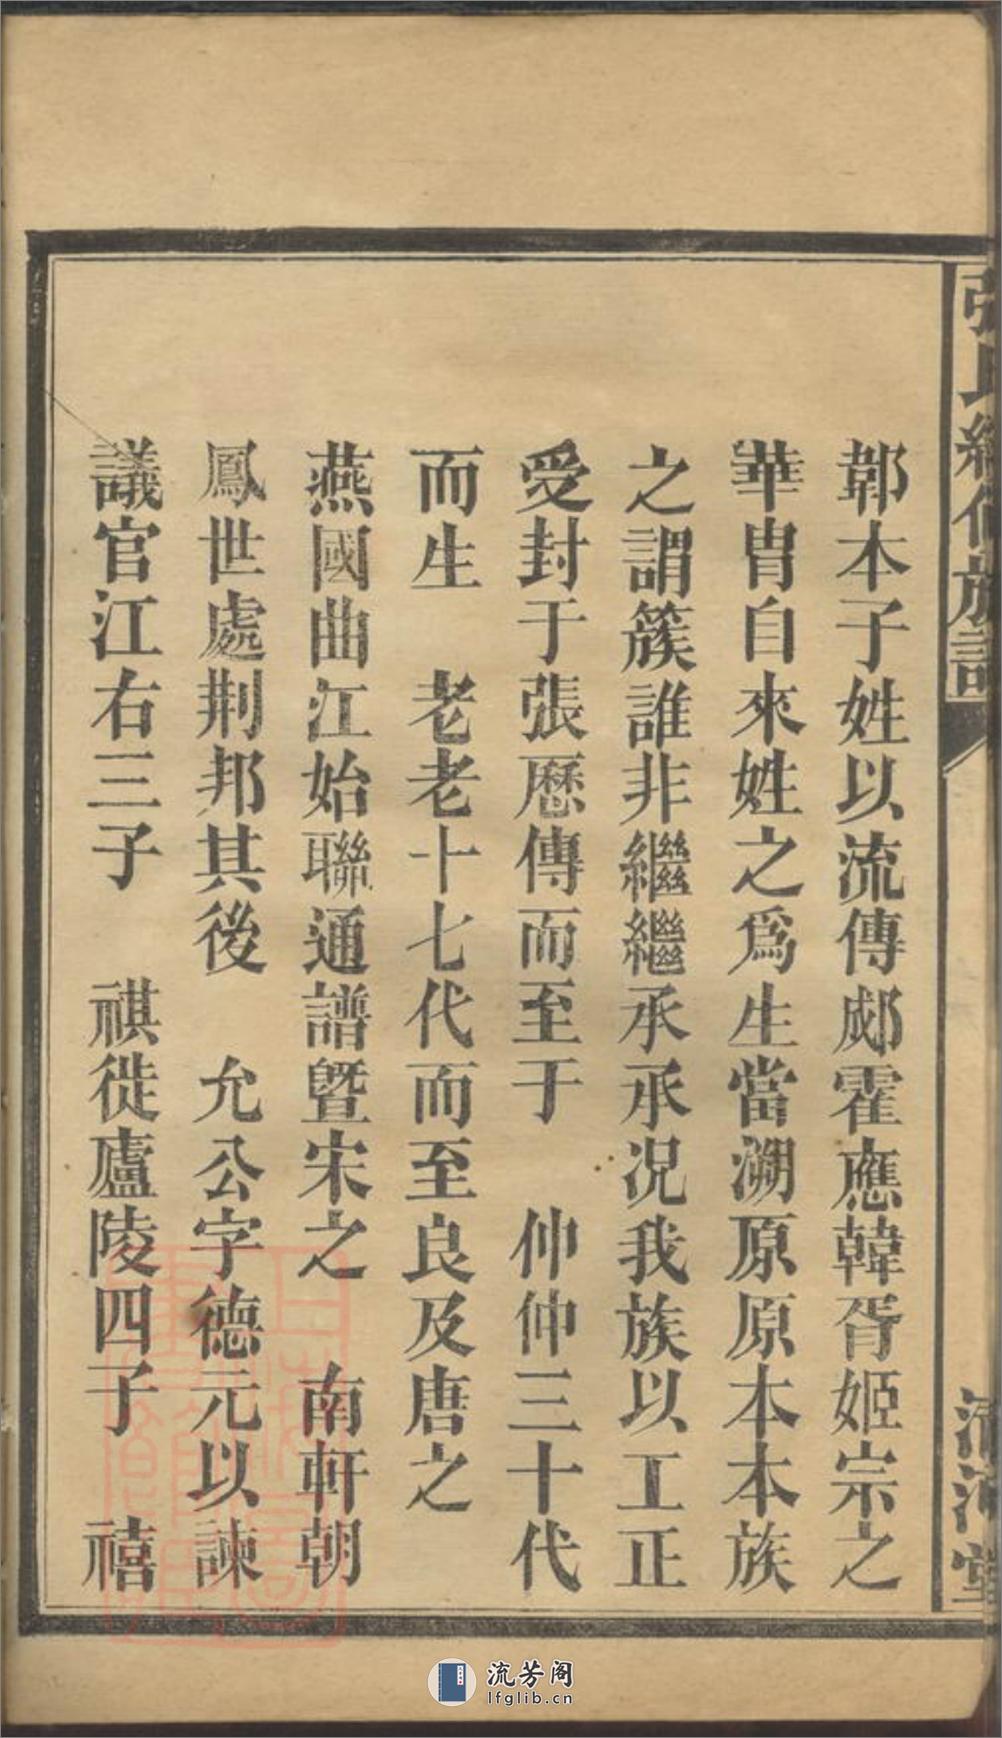 張氏續修族譜
清河堂
鄣本子姓以流傳郕霍應韓胥姬宗之
華胄自來姓之爲生當溯原原本本族
之謂簇誰非繼繼承承况我族以工正
受封于張歷傳而至于 仲仲三十代
而生 老老十七代而至良及唐之
燕國曲江始聯通譜暨宋之 南軒朝
鳳世處荆邦其後 允公字德元以諫
議官江右三子 祺徙廬陵四子 禧
流芳阁
lfglib.cn